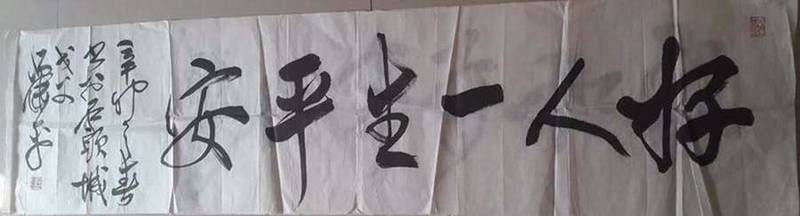 好人一生平安
辛卯之春
书于石头城